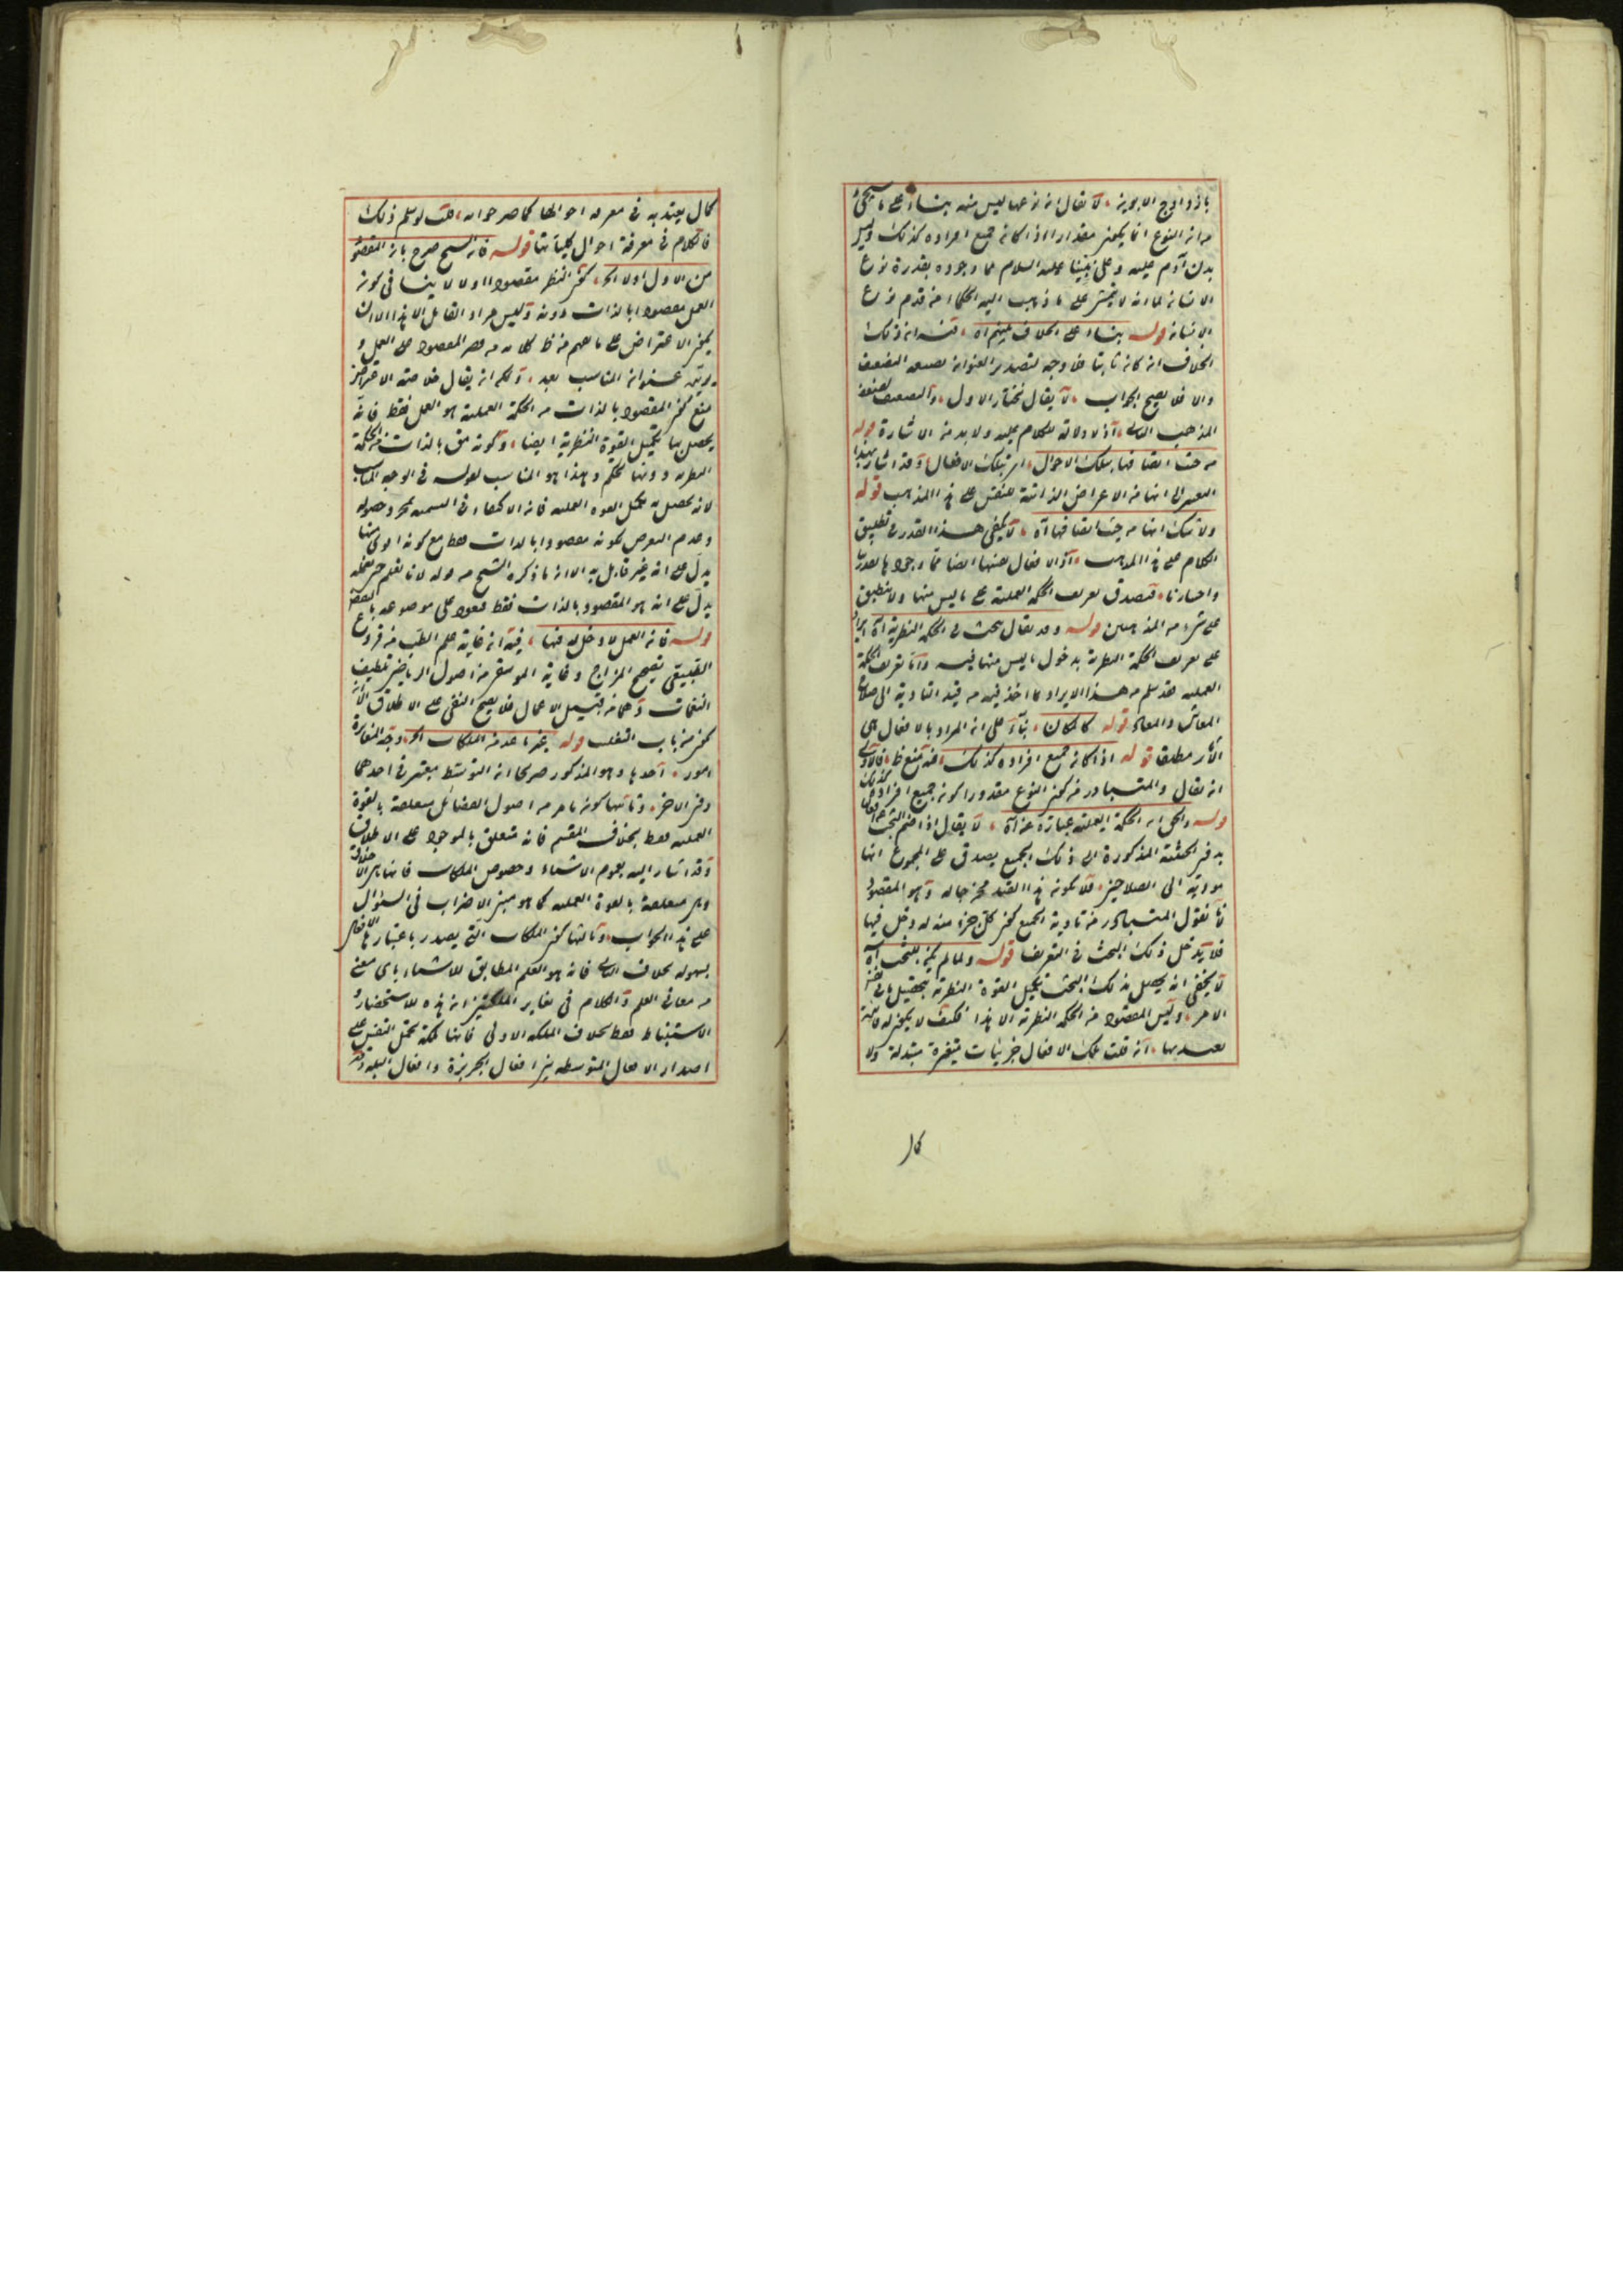 بازدواج الابوين لا يقال ان نوعها ليس منه بناء على ما سيجئ
من ان النوع انما يكون مقدورا اذا كانه جميع افراده كذلك وليس
بدن آدم عليه وعلى نبينا عليه السلام مما وجوده بقدرة نوع
الانسان لما انه لا يتمشى على ما ذهب اليه الحكماء من قدم نوع
الانسان قوله بناء على الخلاف بينهم آه فيه ان ذلك
الخلاف ان كان ثابتا فلا وجه لتصدير العنوان بصيغة الضعف
والا فلا يصح الجواب لا يقال نختار الاول والتضعيف لضعف
المذهب الثاني اذ لا دلالة للكلام عليه ولا بد من الاشارة قوله
من حيث اتصافها بتلك الاحوال اى بتلك الافعال وقد اشار بهذا
التعبير الى انها من الاعراض الذاتية للنفس على هذا المذهب قوله
ولا شك انها من حيث اتصافها آه لا يكفى هذا القدر فى تطبيق
الكلام على هذا المذهب اذ الافعال نفسها ايضا مما وجودها بقدرتنا
واختيارنا فتصدق تعريف الحكمة العملية على ما ليس منها ولا ينطبق
على شئ من المذهبين قوله وقد يقال يبحث فى الحكمة النظرية آه ايراد
على تعريف الحكمة النظرية بدخول ما ليس منها فيه واما تعريف الحكمة
العملية فقد سلم من هذا الايراد بما اخذ فيه من قيد التأدية الى صلاح
المعاش والمعاد قوله كالمكان بناء على ان المراد بالافعال هى
الآثار مطلقا قوله اذا كانه جميع افراده كذلك فيه منع ظ فالاولى
ان يقال والمتبادر من كون النوع مقدورا كونه جميع افراده كذلك
قوله والحق ان الحكمة العملية عبارة عن آه لا يقال اذا ضم البحث عن افعال
بدون الحيثية المذكورة الى ذلك الجميع يصدق على المجموع انها
مؤدية الى الصلاحين فلا يكون هذا القيد مخرجا له وهو المقصود
لانا نقول المتبادر من تأدية الجميع كون كل جزء منه له دخل فيها
فلا يدخل ذلك البحث فى التعريف قوله ولما لم يكن للبحث آه
لا يخفى انه يحصل بذلك البحث تكميل القوة النظرية بتحصيل ما فى نفس
الامر وليس المقصود من الحكمة النظرية الا هذا فكيف لا يكون له فائدة
يعتد بها ان قلت تلك الافعال جزئيات متغيرة متبدلة ولا
كمال
كمال يعتد به فى معرفة احوالها كما صرحوا به قلت لو سلم ذلك
فالكلام فى معرفة احوال كلياتها قوله فان الشيخ صرح بان المقصود
من الاول اولا الخ كون النظر مقصودا اولا لا ينافى كونه
العمل مقصودا بالذات دونه وليس مراد القائل الا هذا الا ان
يكون الاعتراض على ما يفهم من ظ كلامه من قصر المقصود على العمل و
منع كون المقصود بالذات من الحكمة العملية هو العمل فقط فانه
يحصل بها تكميل القوة النظرية ايضا وكونه مق بالذات من الحكمة
النظرية دونها تحكم وهذا هو المناسب لقوله فى الوجه المناسب
لانه يحصل به تكميل القوة العملية فان الاكتفاء فى التسمية بمجرد حصوله
وعدم التعرض لكونه مقصودا بالذات فقط مع كونه اولى منها
يدل على انه غير قابل به الا ان ما ذكره الشيخ من قوله لانا نعلم حين نعلمه
يدل على انه هو المقصود بالذات فقط
قوله فان العمل لا دخل له فيها فيه ان غاية علم الطب من فروع
الطبيعى تصحيح المزاج وغاية الموسيقى من اصول الرياضى تلطيف
النغمات وهما من قبيل الاعمال فلا يصح النفى على الاطلاق الا ان
يكون من باب التغليب قوله غير ما عد من الملكات الخ وجه المغايرة
امور احدها وهو المذكور صريحا ان التوسط معتبر فى احدهما
دون الاخر وثانيها كونه ما مر من اصول الفضائل متعلقة بالقوة
العملية فقط بخلاف المقسم فانه متعلق بالموجود على الاطلاق
وقد اشار اليه بعموم الاشياء وخصوص الملكات فانها هى الاخلاق
وهى متعلقة بالقوة العملية كما هو مبنى الاضراب فى السؤال
على هذا الجواب وثالثها كون الملكات التى يصدر باعتبارها الافعال
بسهولة بخلاف الثانى فانه هو العلم المطابق للاشياء باى معنى
من معانى العلم والكلام فى تغاير الملكتين ان هذه للاستحضار و
الاستنباط فقط بخلاف الملكة الاولى فانها ملكة تحمل النفس على
اصدار الافعال المتوسطة بين افعال الجربزة وافعال البله